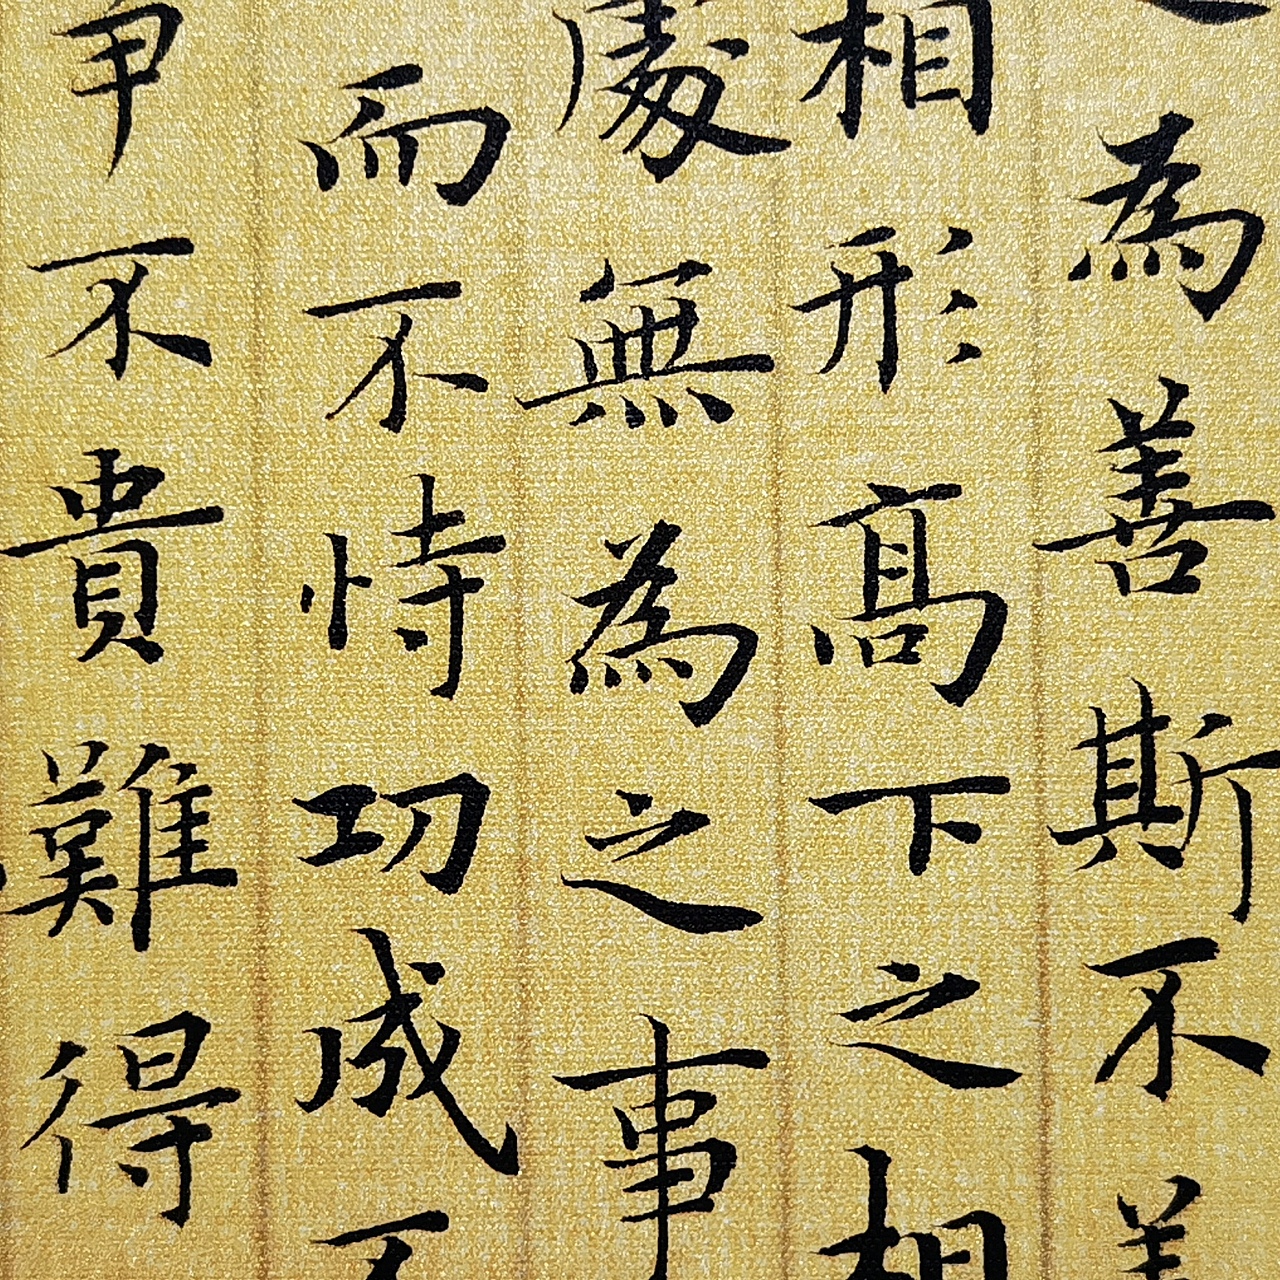 為善斯不善
相形高下之相
處無為之事
而不恃功成不
爭不貴難得